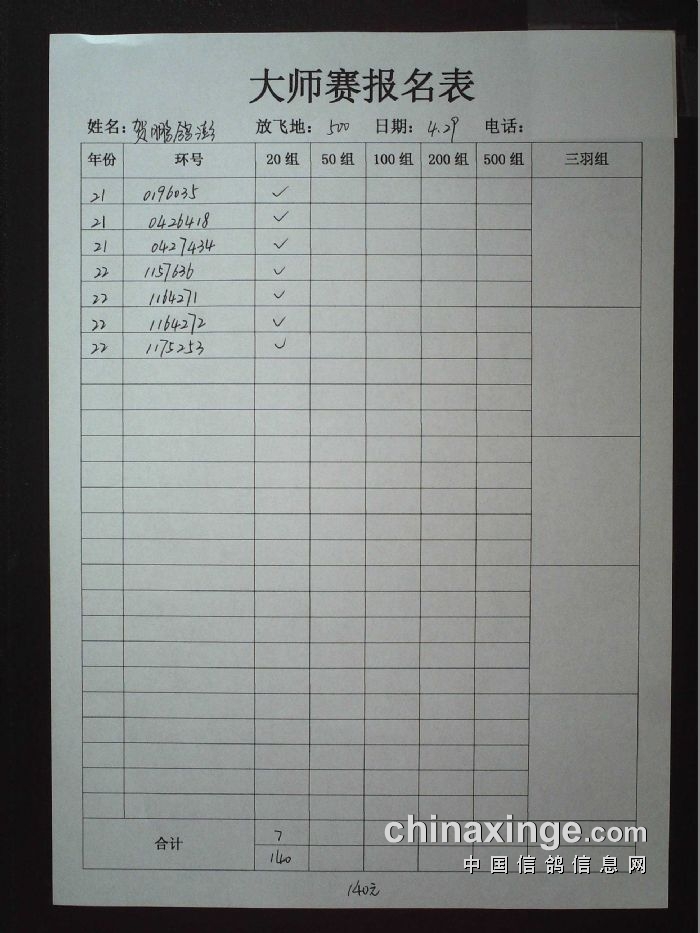 大师赛报名表
姓名：贺鹏 放飞地：500 日期：4.29 电话：
年份 环号 20组 50组 100组 200组 500组 三羽组
21 0196035 ✓
21 0426418 ✓
21 0427434 ✓
22 1157636 ✓
22 1164271 ✓
22 1164272 ✓
22 1175253 ✓
合计 7
140
140元
chinaxinge.com
中国信鸽信息网